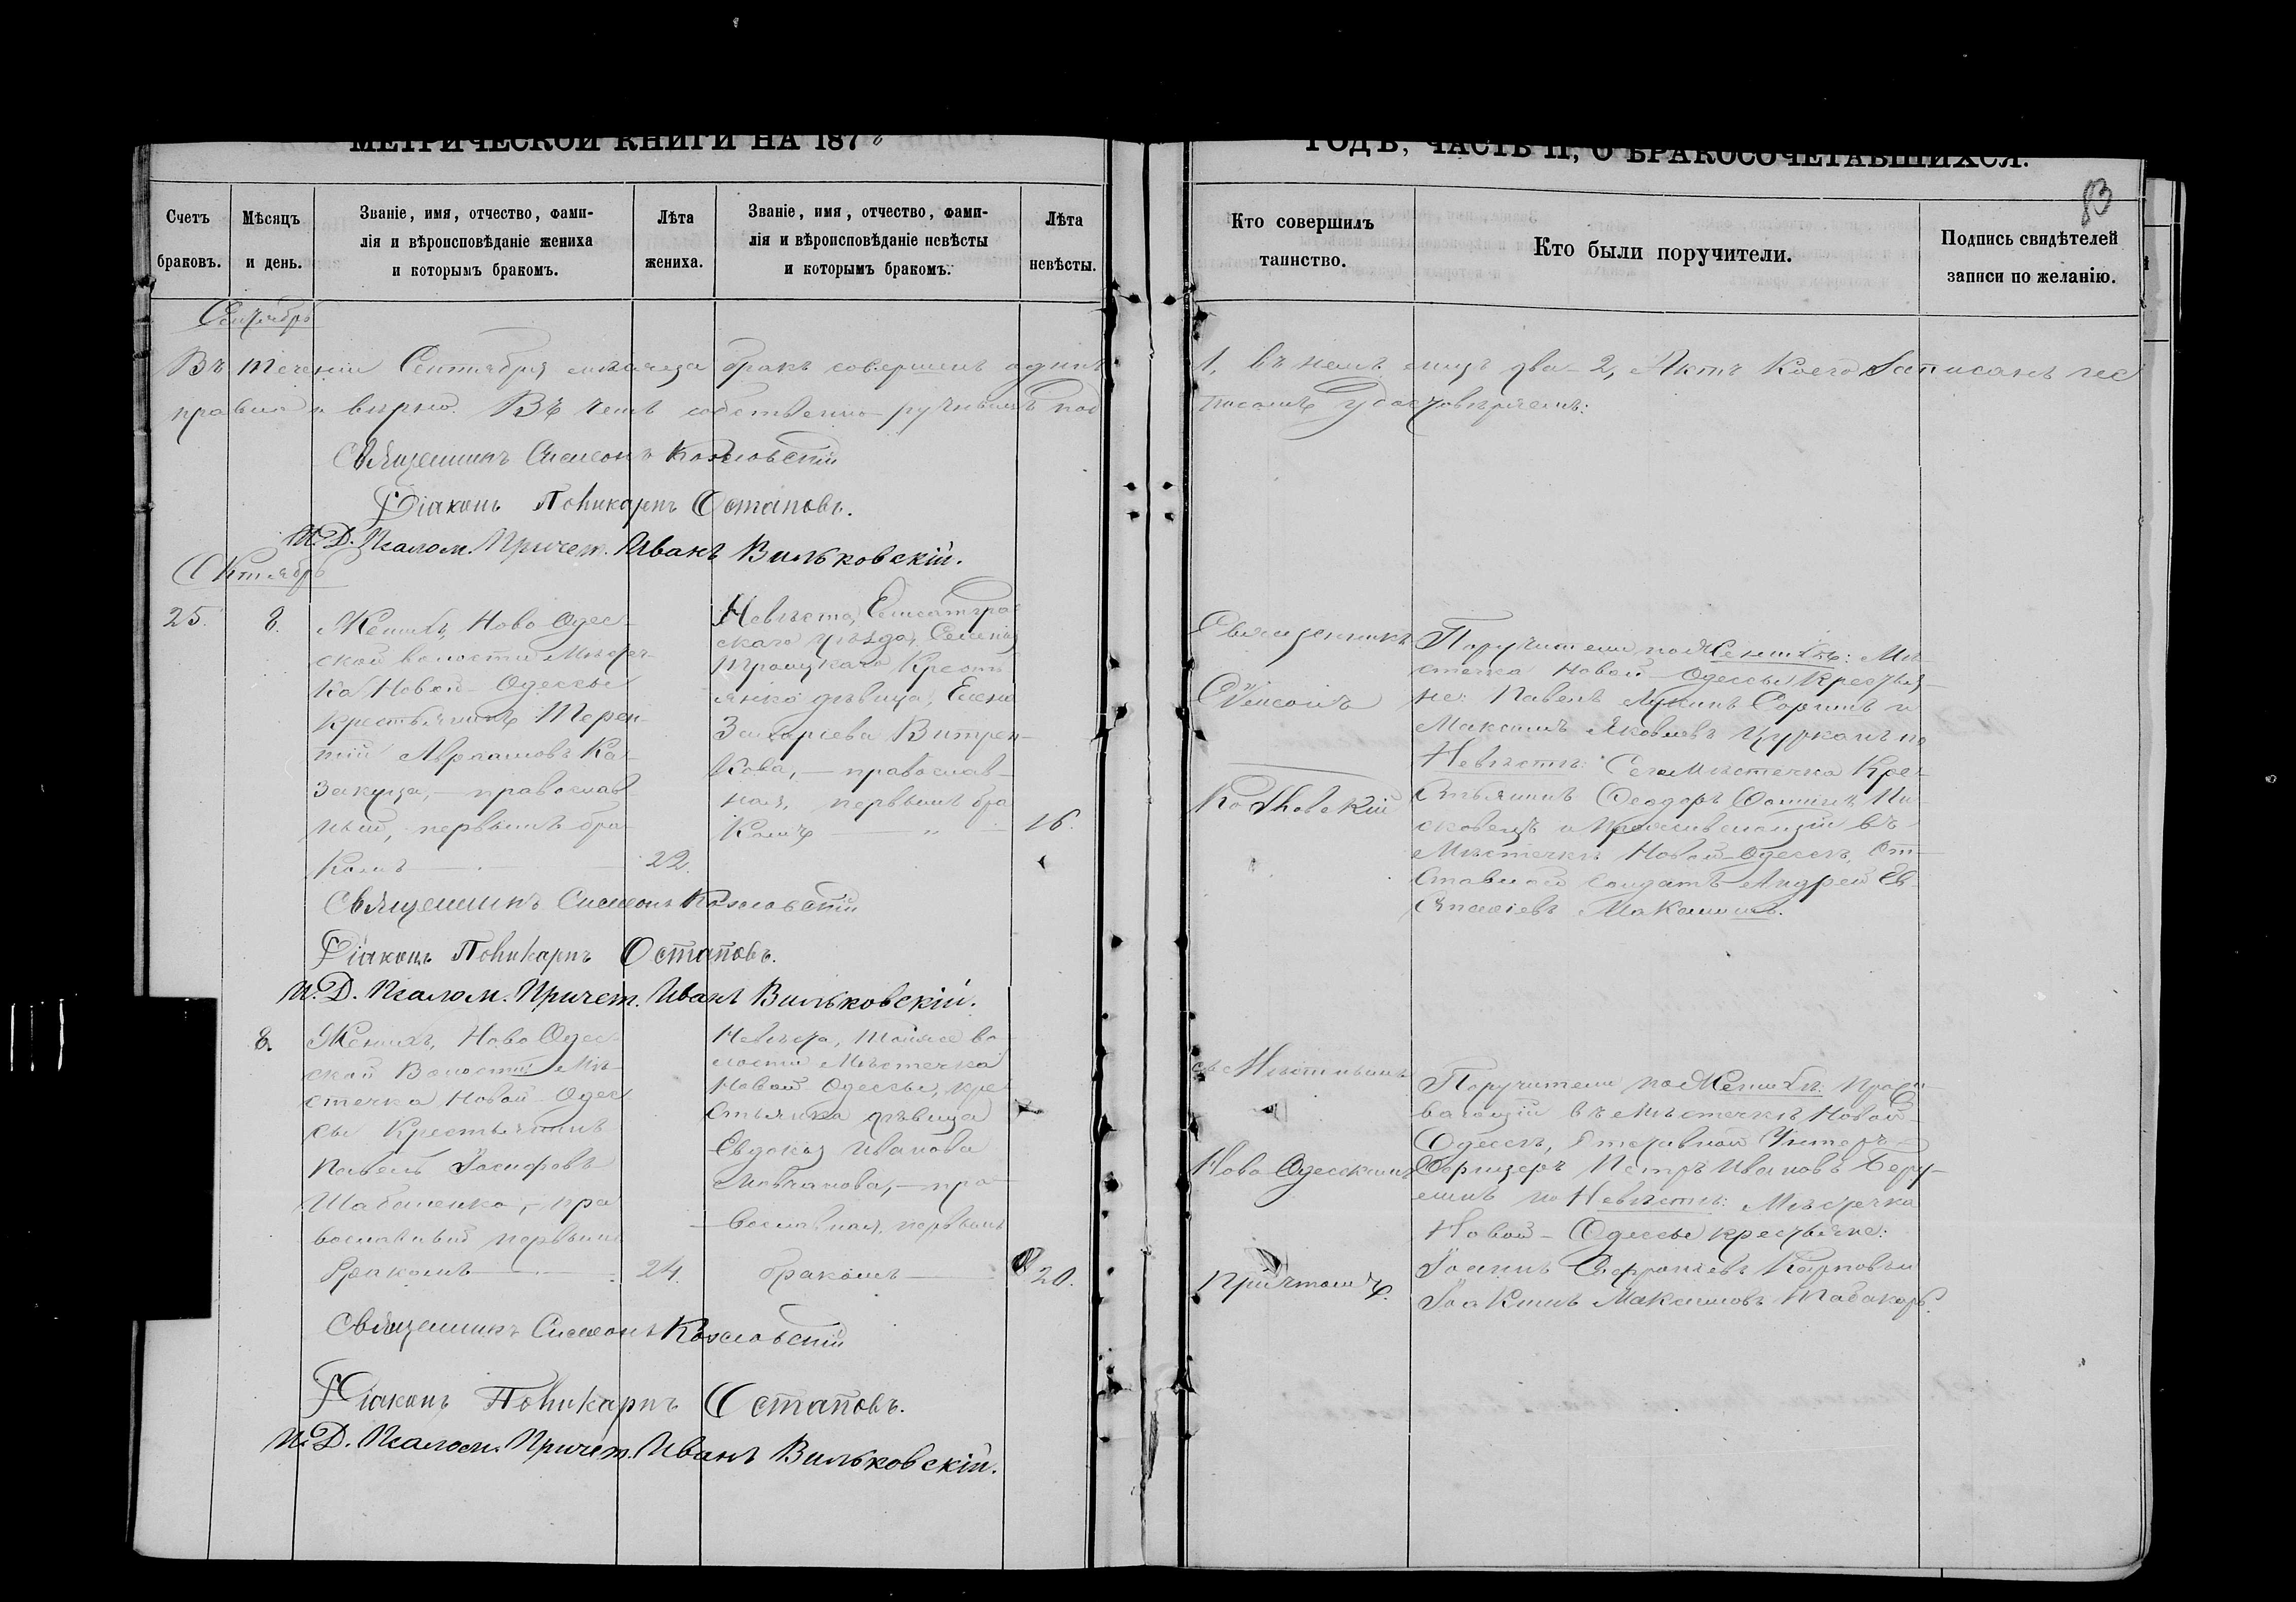 МЕТРИЧЕСКОЙ КНИГИ НА 187
ГОДЪ, ЧАСТЬ II, О БРАКОСОЧЕТАВШИХСЯ.
83
Счетъ
браковъ.
Мѣсяцъ
и день.
Званіе, имя, отчество, фами-
лія и вѣроисповѣданіе жениха
и которымъ бракомъ.
Лѣта
жениха.
Званіе, имя, отчество, фами-
лія и вѣроисповѣданіе невѣсты
и которымъ бракомъ.
Лѣта
невѣсты.
Кто совершилъ
таинство.
Кто были поручители.
Подпись свидѣтелей
записи по желанію.
Сентябрь
Въ теченіи Сентября мѣсяца бракъ совершенъ одинъ 1, въ немъ лицъ два - 2, Актъ коего записанъ
правильно и вѣрно. Въ чемъ собственно-ручнымъ подписомъ удостовѣряемъ:
Священникъ Симеонъ Козловскій
Діаконъ Поликарпъ Остаповъ.
И. Д. Псалом. Причет. Иванъ Вильковскій.
Октябрь
25.
8.
Женихъ, Ново Одес-
ской волости Мѣстеч-
ка Новой-Одессы
крестьянинъ Терен-
тій Авраамовъ Ка-
закуца, — православ-
ный, первымъ бра-
комъ
22.
Невѣста, Елисаветград-
скаго уѣзда, Селенія
Троицкаго Кресть-
янка дѣвица, Елена
Захаріева Витрен-
кова, — православ-
ная, первымъ бра-
комъ
16.
Священникъ
Симеонъ
Козловскій
Поручители по Женихѣ: Мѣ-
стечка Новой-Одессы Крестья-
не: Павелъ и
Максимъ Яковлевъ Цурканъ по
Невѣстѣ: Мѣстечка Кре-
стьянинъ Ѳеодоръ
и проживающій въ
Мѣстечкѣ Новой-Одессѣ, От-
ставной солдатъ Андрей Ев-
Священникъ Симеонъ Козловскій
Діаконъ Поликарпъ Остаповъ.
И. Д. Псалом. Причет. Иванъ Вильковскій.
8.
Женихъ, Ново Одес-
ской Волости Мѣ-
стечка Новой-Одес-
сы Крестьянинъ
Павелъ Іосифовъ
пра-
вославный первымъ
бракомъ
24.
Невѣста, тойже во-
лости Мѣстечка
Новой Одессы, кре-
стьянка дѣвица
Евдокія Иванова
Мовчанова, — пра-
вославная, первымъ
бракомъ
20.
съ Мѣстнымъ
Ново-Одесскимъ
Причтомъ.
Поручители по Женихѣ: Прожи-
вающій въ Мѣстечкѣ Новой-
Одессѣ, Отставной Унтеръ-
Офицеръ Петръ Ивановъ
по Невѣстѣ: Мѣстечка
Новой-Одессы крестьяне:
Іоаннъ Софроніевъ Карповъ и
Іоакимъ Максимовъ Табакаръ.
Священникъ Симеонъ Козловскій
Діаконъ Поликарпъ Остаповъ.
И. Д. Псалом. Причет. Иванъ Вильковскій.